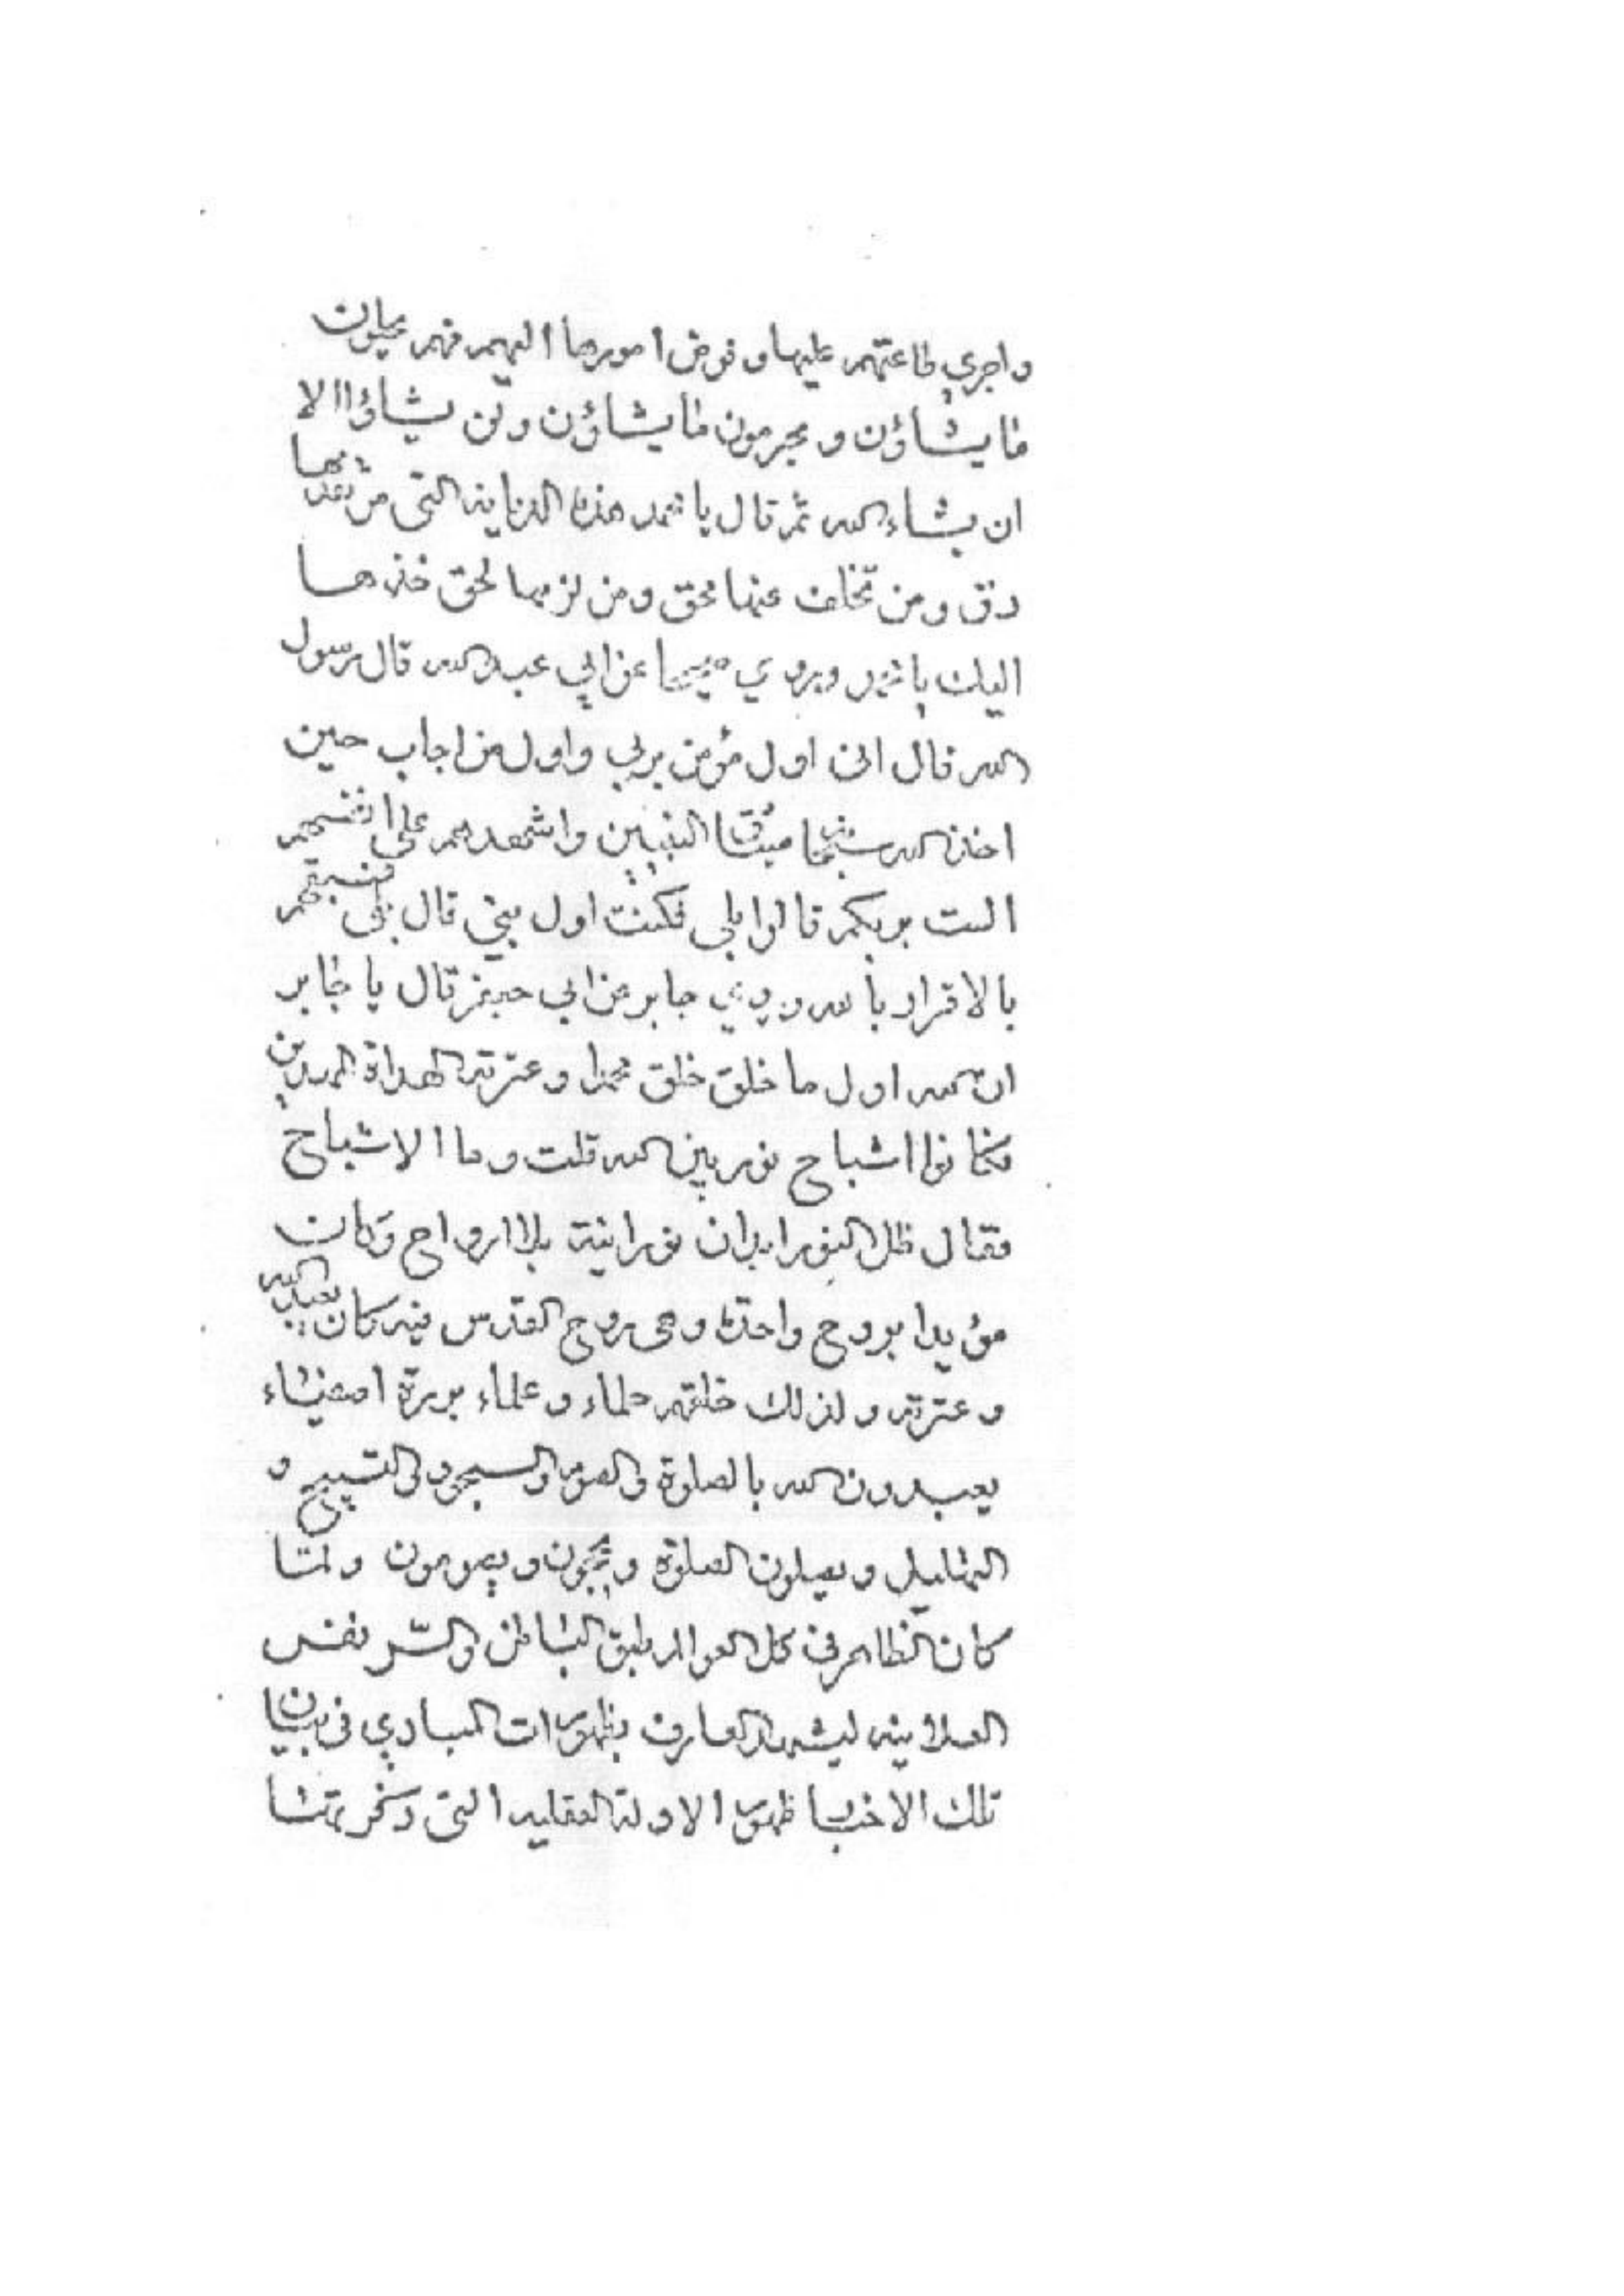 واجري طاعتهم عليها و فوض امورها اليهم فهم يحلون
ما يشاؤن و يحرمون ما يشاؤن ولن يشاؤا الا
ان يشاء الله ثم قال يا محمد هذه الديانة التي من تقدمها
ومن تخلف عنها محق ومن لزمها لحق خذها
اليك يا محمد وروي عن ابي عبد الله قال رسول
الله قال اني اول مؤمن بربي واول من اجاب حين
اخذ الله ميثاق النبيين واشهدهم على انفسهم
الست بربكم قالوا بلى فكنت اول نبي قال بلى فسبقتهم
بالاقرار بالله وروي جابر عن ابي جعفر قال يا جابر
ان الله اول ما خلق خلق محمدا وعترته الهداة المهديين
فكانوا اشباح نور بين الله قلت وما الاشباح
فقال ظل النور ابدان نورانية بلا ارواح وكان
مؤيدا بروح واحدة وهي روح القدس فيه كان يعبد الله
وعترته ولذلك خلقهم حلماء وعلماء بررة اصفياء
يعبدون الله بالصلوة والصوم والسجود والتسبيح و
التهليل ويصلون الصلوة ويحجون ويصومون ولما
كان الظاهر في كل العوالم طبق الباطن والسر نفس
العلانيه ليشهد العارف بظهورات المبادي في بيان
تلك الاخبار ظهور الادلة العقليه التي ذكرتها